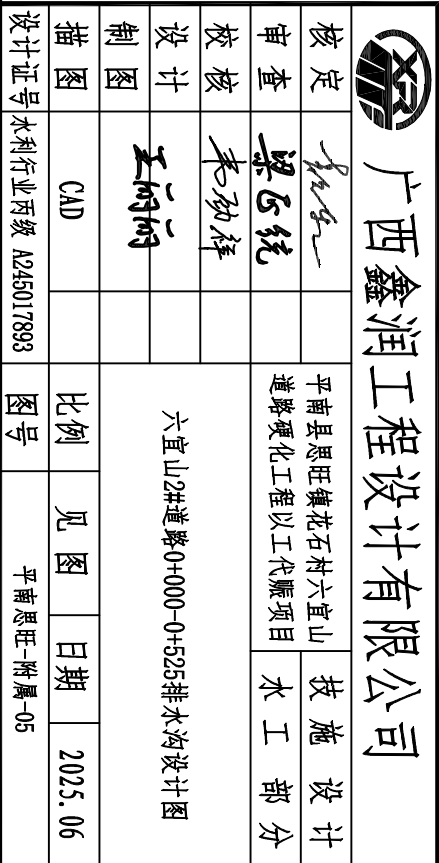 广西鑫润工程设计有限公司
核定
平南县思旺镇花石村六宜山
道路硬化工程以工代赈项目
技施 设计
审查
水工 部分
校核
设计
六宜山2#道路0+000-0+525排水沟设计图
制图
描图 CAD 比例 见图 日期 2025.06
设计证号 水利行业丙级 A245017893 图号 平南思旺-附属-05